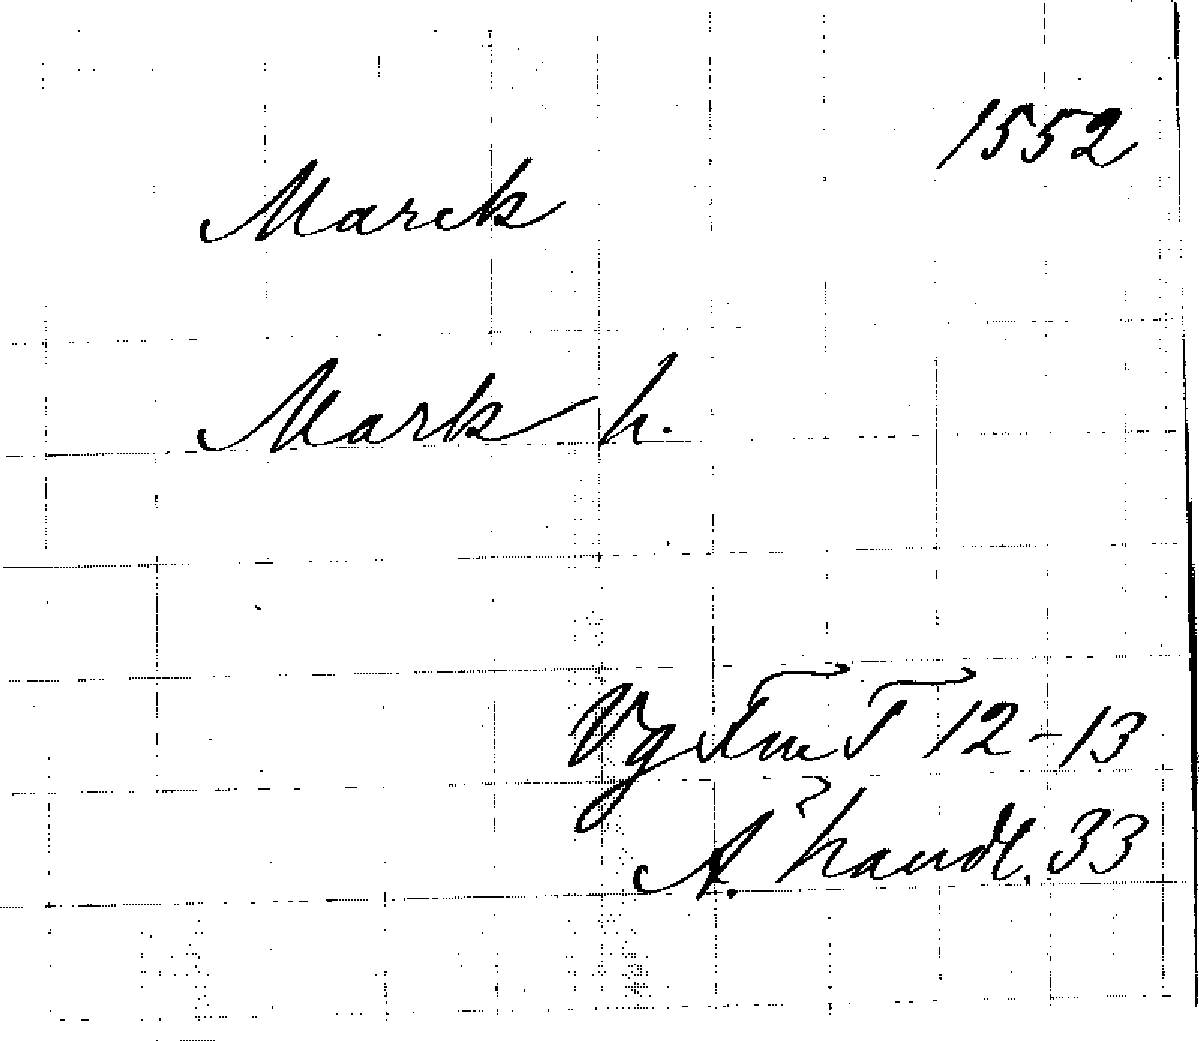 1552
Marck
Mark h.
Vg FmT 12-13
A. handl. 33